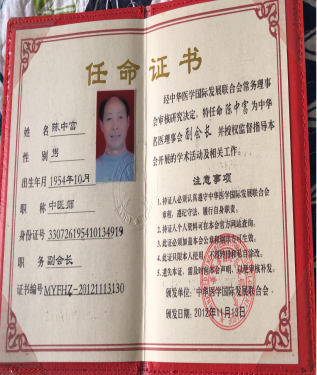 任命证书
姓名 陈中富
性别 男
出生年月 1954年10月
职称 中医师
身份证号 330726195410134919
职务 副会长
证书编号 MYFHZ-20121113130
经中华医学国际发展联合会常务理事
会审核研究决定，特任命陈中富为中华
名医理事会副会长 并授权监督指导本
会开展的学术活动及相关工作。
注意事项
1.持证人必须认真遵守中华医学国际发展联合会
章程，遵纪守法，履行自身职责。
2.持证人个人资料可在本会官方网站查询。
3.此证必须加盖本会公章和钢印方可生效。
4.此证只限本人使用，不得转借和私自涂改。
5.遗失本证，需及时向本会声明，以便审核补发。
颁发单位：中华医学国际发展联合会
颁发日期：2012年11月13日